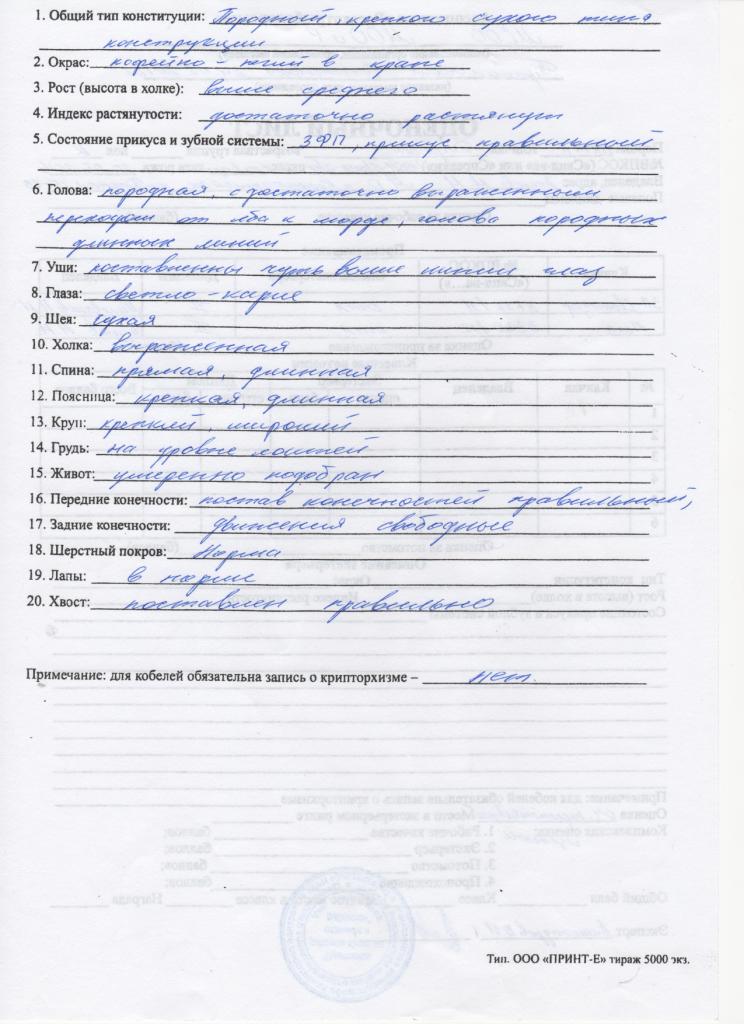 1. Общий тип конституции: Породный, крепкого сухого типа
конструкции
2. Окрас: кофейно-пегий в крапе
3. Рост (высота в холке): выше среднего
4. Индекс растянутости: достаточно растянут
5. Состояние прикуса и зубной системы: ЗФП, прикус правильный
6. Голова: породная, с достаточно выраженным
переходом от лба к морде, голова породных
длинных линий
7. Уши: поставлены чуть выше линии глаз
8. Глаза: светло-карие
9. Шея: сухая
10. Холка: выраженная
11. Спина: прямая, длинная
12. Поясница: крепкая, длинная
13. Круп: крепкий, широкий
14. Грудь: на уровне локтей
15. Живот: умеренно подобран
16. Передние конечности: постав конечностей правильный,
17. Задние конечности: движения свободные
18. Шерстный покров: Норма
19. Лапы: в норме
20. Хвост: поставлен правильно
Примечание: для кобелей обязательна запись о крипторхизме – нет.
Тип. ООО «ПРИНТ-Е» тираж 5000 экз.